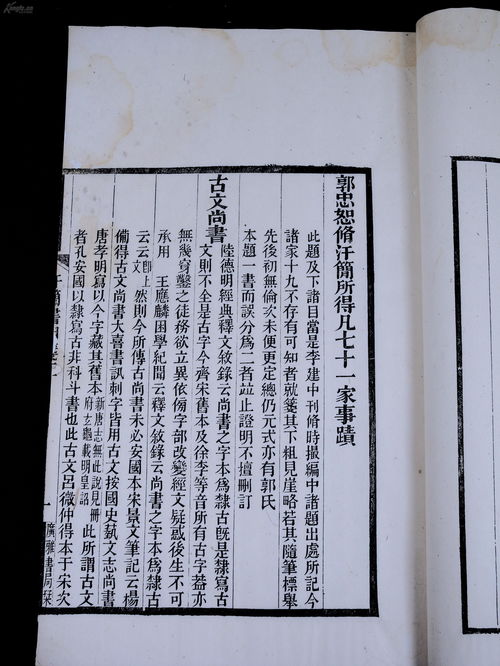 郭忠恕脩汗簡所得凡七十一家事蹟
此題及下諸目當是李建中刊脩時撮編中諸題出處所記今
諸家十九不存有可知者就箋其下粗見崖略若其隨筆標舉
先後初無倫次未便更定總仍元式亦有郭氏
本題一書而誤分爲二者竝止證明不擅刪訂
古文尚書
陸德明經典釋文敘錄云尚書之字本爲隸古旣是隸寫古
文則不全是古字今齊宋舊本及徐李等音所有古字葢亦
無幾穿鑿之徒務欲立異依傍字部改變經文疑惑後生不可
承用 王應麟困學紀聞云釋文敘錄云尚書之字本爲隸古
云云卽上文然則今所傳古尚書未必安國本宋景文筆記云楊
備得古文尚書大喜書訊刺字皆用古文按國史蓺文志尚書
唐孝明寫以今字藏其舊本新唐志無此說見冊府元龜載明皇詔此所謂古文
者孔安國以隸寫古非科斗書也此古文呂微仲得本于宋次
汗簡書目
一
廣雅書局栞